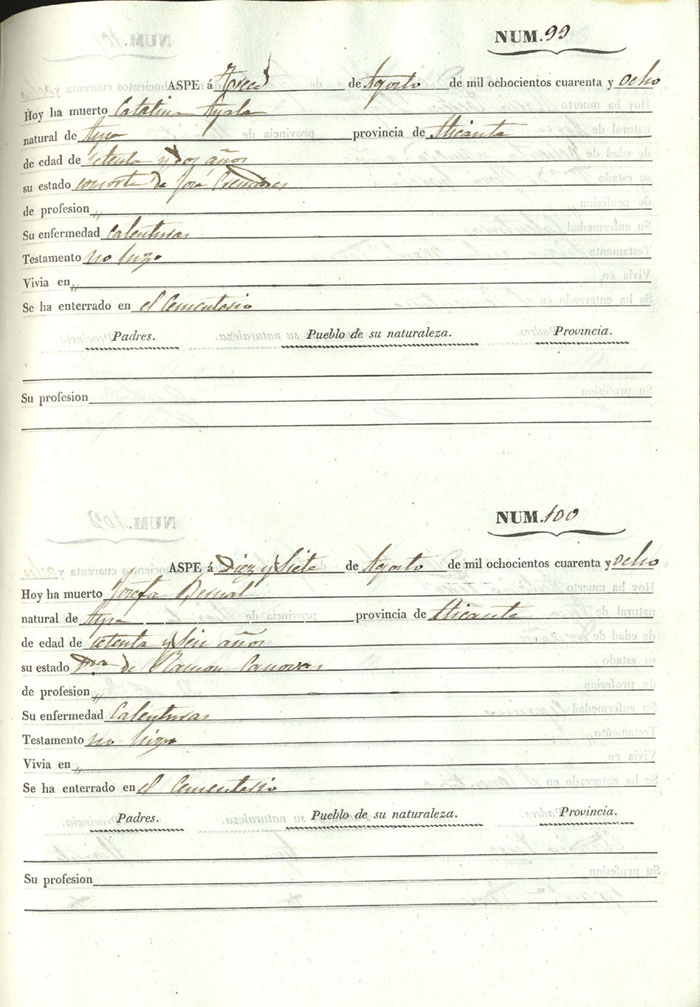 NUM. 99
ASPE á Trece de Agosto de mil ochocientos cuarenta y ocho
Hoy ha muerto Catalina Ayala
natural de Aspe provincia de Alicante
de edad de setenta y dos años
su estado consorte de José
de profesion "
Su enfermedad Calenturas
Testamento no hizo
Vivia en "
Se ha enterrado en el Cementerio
Padres. Pueblo de su naturaleza. Provincia.
Su profesion
NUM. 100
ASPE á Diez y Siete de Agosto de mil ochocientos cuarenta y ocho
Hoy ha muerto Josefa Bernal
natural de Aspe provincia de Alicante
de edad de setenta y seis años
su estado de Ramon Canovas
de profesion "
Su enfermedad Calenturas
Testamento no hizo
Vivia en "
Se ha enterrado en el Cementerio
Padres. Pueblo de su naturaleza. Provincia.
Su profesion